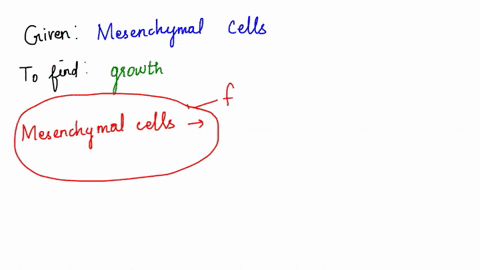 Given: Mesenchymal cells
To find: growth
f
Mesenchymal cells →